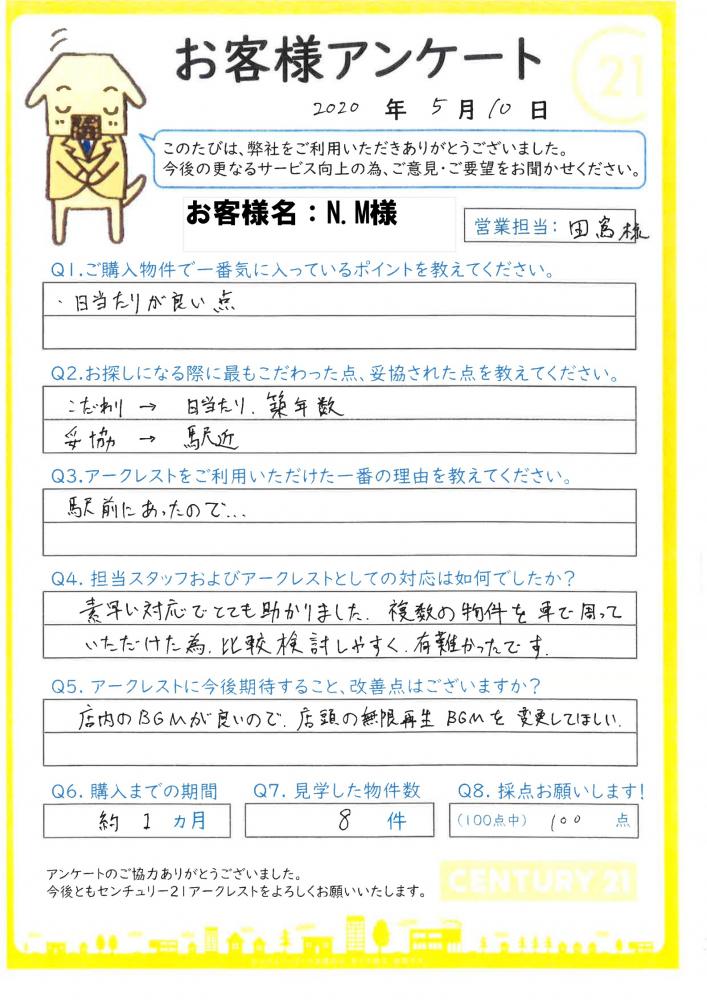 お客様アンケート
21
2020 年 5 月 10 日
このたびは、弊社をご利用いただきありがとうございました。
今後の更なるサービス向上の為、ご意見・ご要望をお聞かせください。
お客様名：N.M様
営業担当： 田嶌様
Q1.ご購入物件で一番気に入っているポイントを教えてください。
・日当たりが良い点
Q2.お探しになる際に最もこだわった点、妥協された点を教えてください。
こだわり → 日当たり、築年数
妥協 → 駅近
Q3.アークレストをご利用いただけた一番の理由を教えてください。
駅前にあったので...
Q4. 担当スタッフおよびアークレストとしての対応は如何でしたか？
素早い対応でとても助かりました。複数の物件を車で周って
いただけた為、比較検討しやすく、有難かったです。
Q5. アークレストに今後期待すること、改善点はございますか？
店内のBGMが良いので、店頭の無限再生BGMを変更してほしい。
Q6. 購入までの期間 Q7. 見学した物件数 Q8. 採点お願いします！
約 1 カ月 8 件 (100点中) 100 点
アンケートのご協力ありがとうございました。
今後ともセンチュリー21アークレストをよろしくお願いいたします。
CENTURY 21